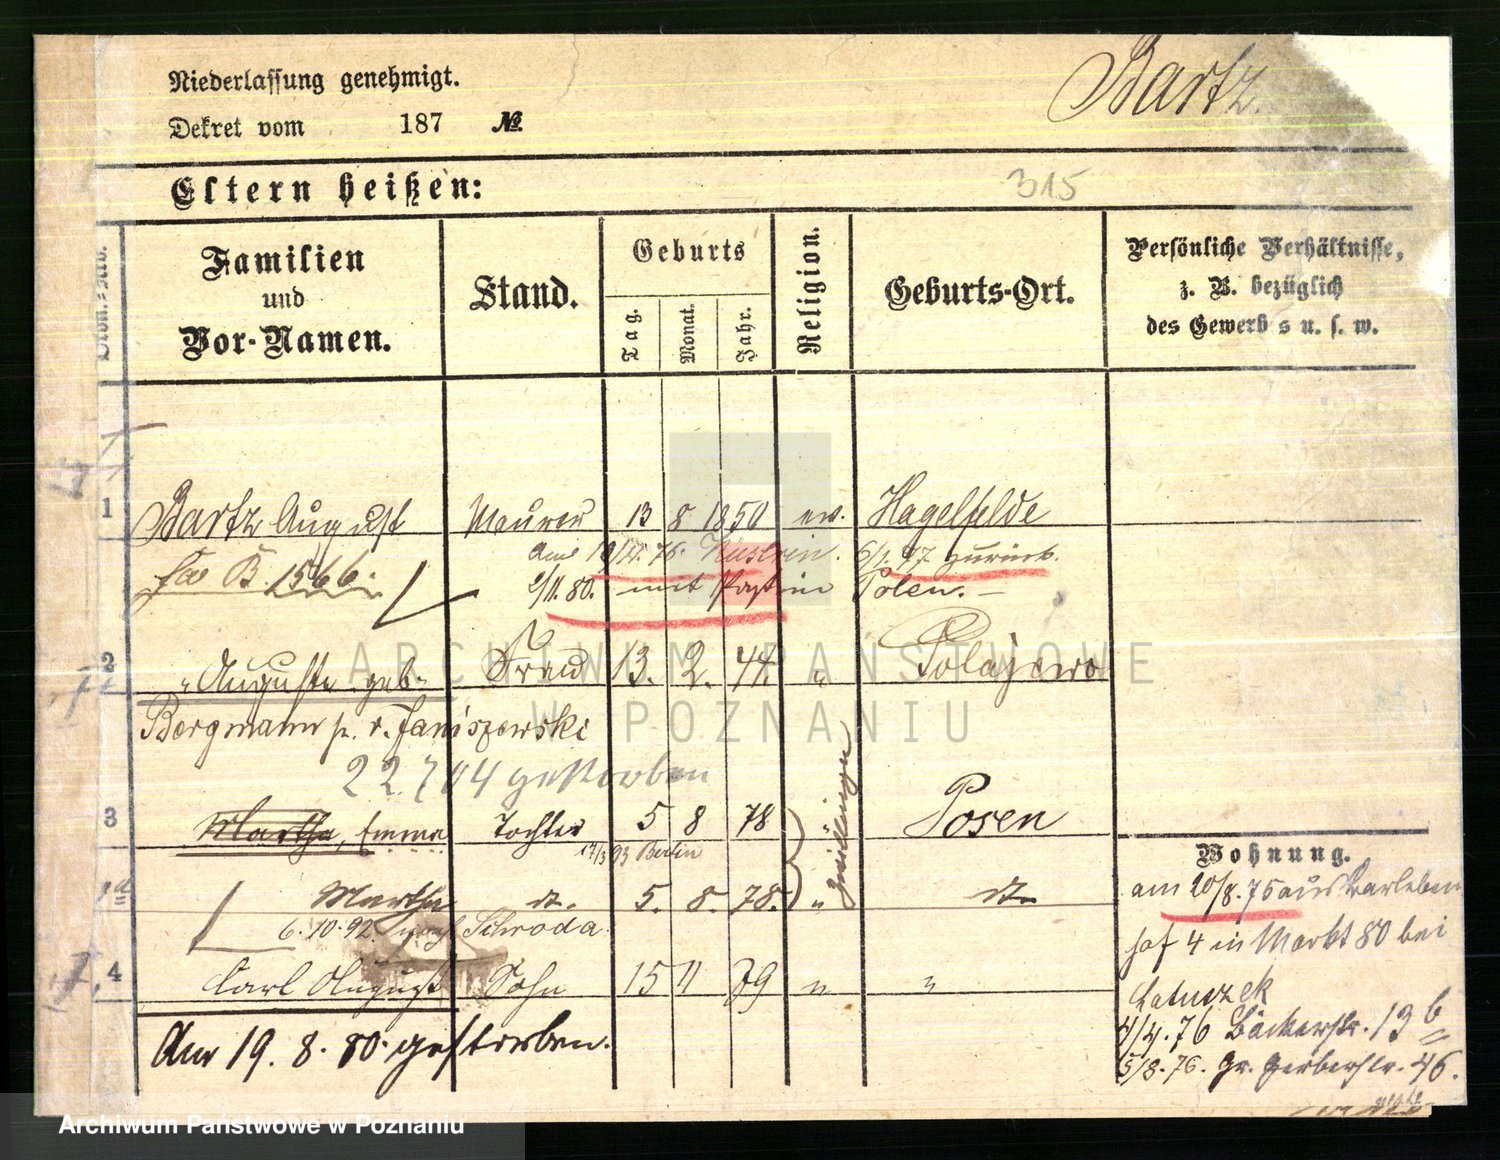 Niederlassung genehmigt.
Bartz.
Dekret vom 187 №
Eltern heißen:
315
Familien und Vor-Namen.
Stand.
Geburts
Tag.
Monat.
Jahr.
Religion.
Geburts-Ort.
Persönliche Verhältnisse,
z. B. bezüglich
des Gewerbs u. s. w.
1 Bartz August Maurer 13 8 1850 ev. Hagelfelde
B. 1566. 76. Küstrin. zurück.
1/11. 80. mit Polen.
2 " Auguste geb. Frau 13. 2. 44. " Polajewo
Bergmann p. v. Janiszewski
22.704 gestorben
3 Martha, Emma Tochter 5 8 78 " Posen
17/3 93 Berlin
Zwillinge
1a Martha dt. 5. 8. 78. " dt.
6.10.92. nach Schroda
4 Carl August Sohn 15 11 79 " "
Am 19. 8. 80. gestorben.
Wohnung.
am 20/8. 75 aus
4 in Markt 80 bei
Latuszek
4/4. 76 Bäckerstr. 13 b
5/8. 76. Gr. Gerberstr. 46.
ARCHIWUM PAŃSTWOWE
W POZNANIU
Archiwum Państwowe w Poznaniu